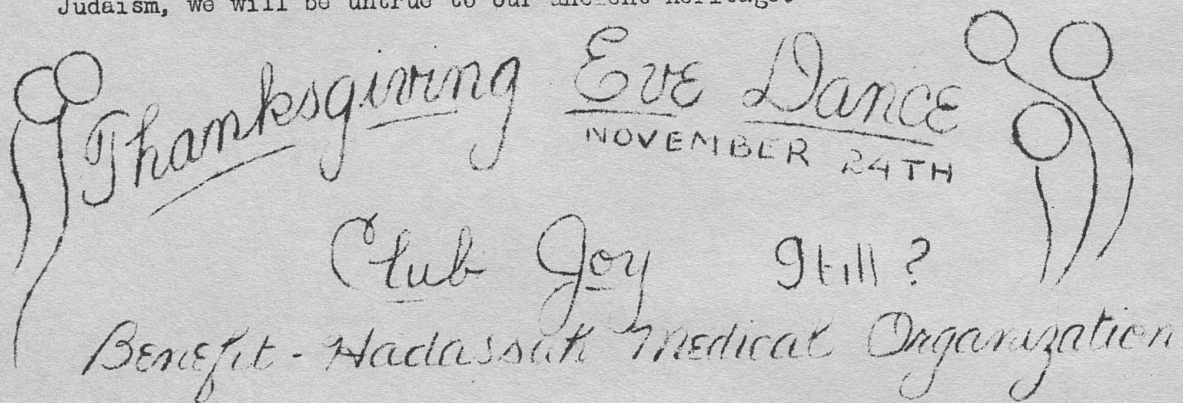 Judaism, we will be untrue to our ancient heritage.
Thanksgiving Eve Dance
NOVEMBER 24TH
Club Joy 9till ?
Benefit - Hadassah Medical Organization